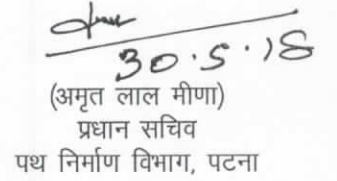 30.5.18
(अमृत लाल मीणा)
प्रधान सचिव
पथ निर्माण विभाग, पटना